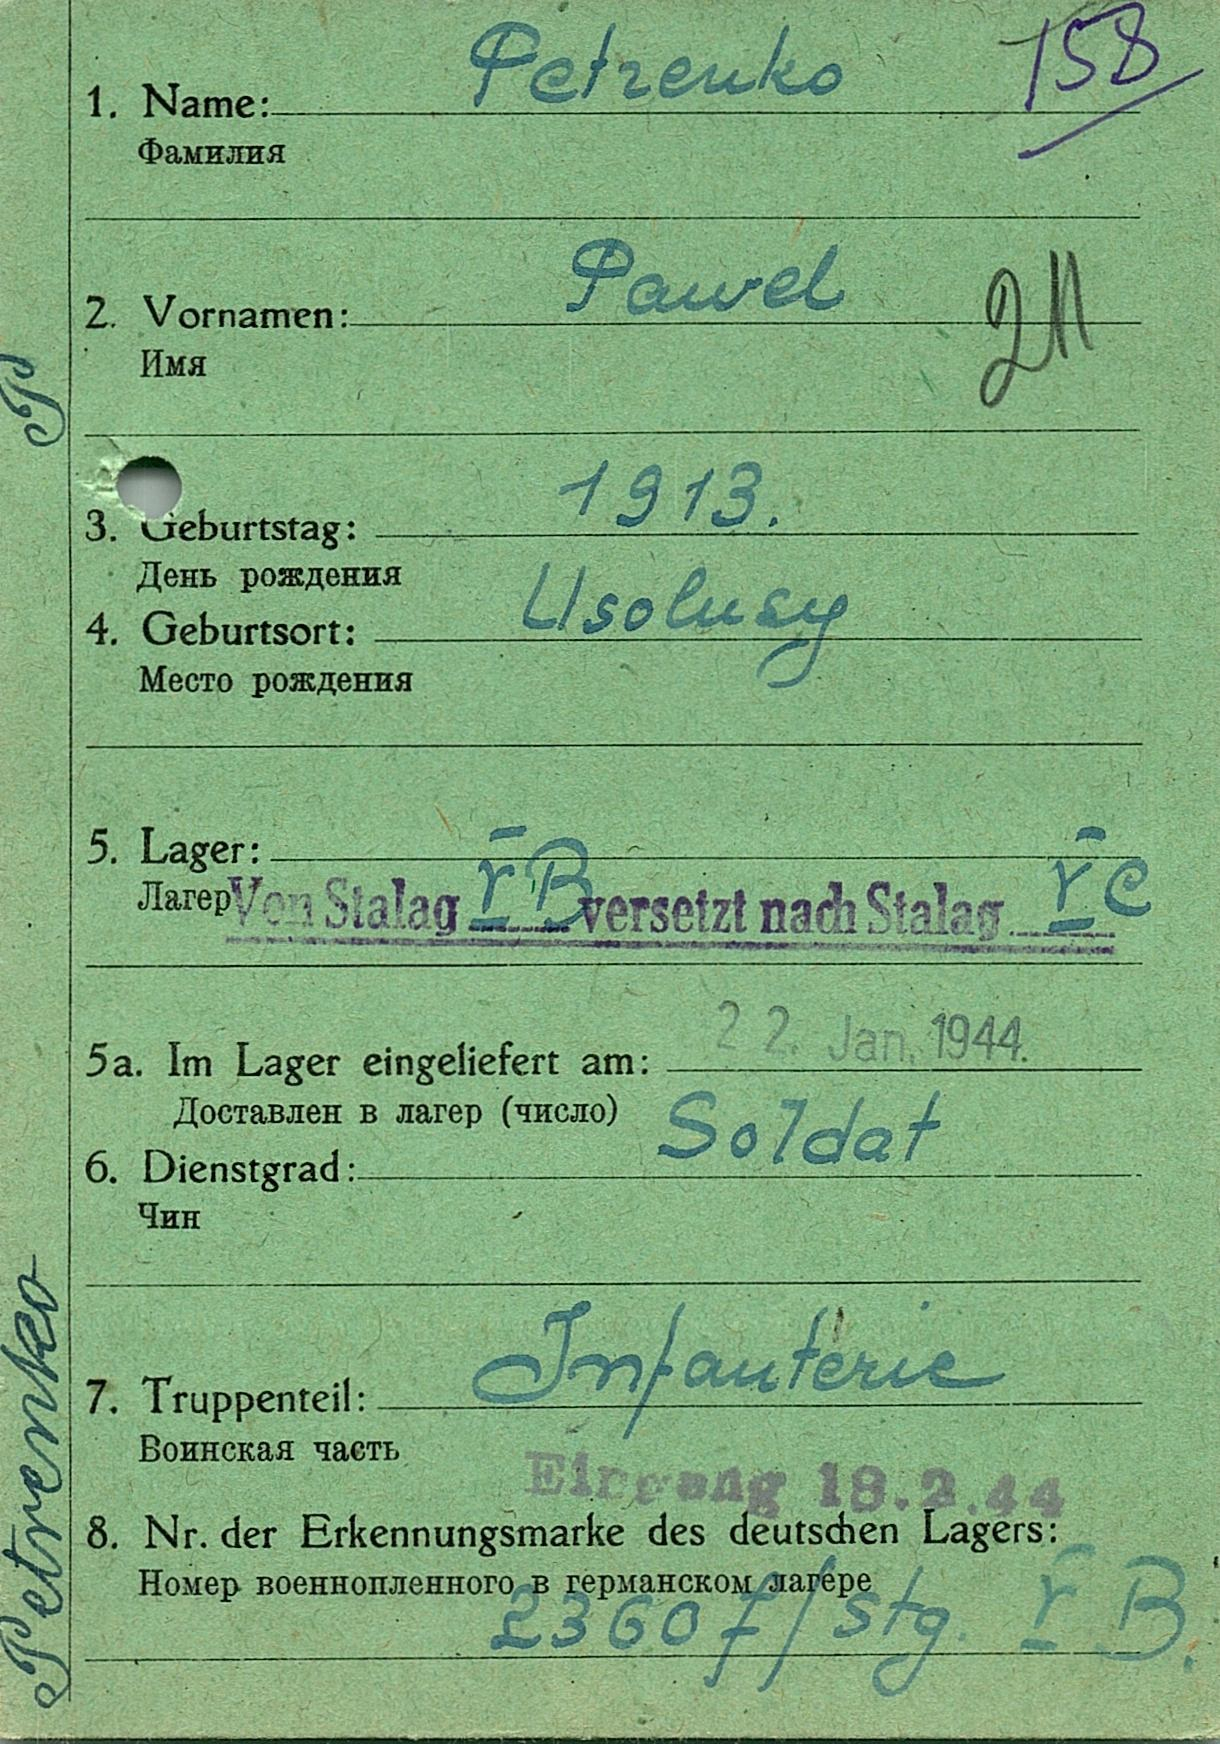 158
1. Name: Petrenko
Фамилия
2. Vornamen: Pawel
Имя
211
P
3. Geburtstag: 1913.
День рождения
4. Geburtsort: Usolusy
Место рождения
5. Lager:
Лагер Von Stalag V B versetzt nach Stalag V C
5a. Im Lager eingeliefert am: 22. Jan. 1944.
Доставлен в лагер (число)
6. Dienstgrad: Soldat
Чин
7. Truppenteil: Infanterie
Воинская часть
Eingang 18.2.44
8. Nr. der Erkennungsmarke des deutschen Lagers:
Номер военнопленного в германском лагере
23607/Stg. V B.
Petrenko